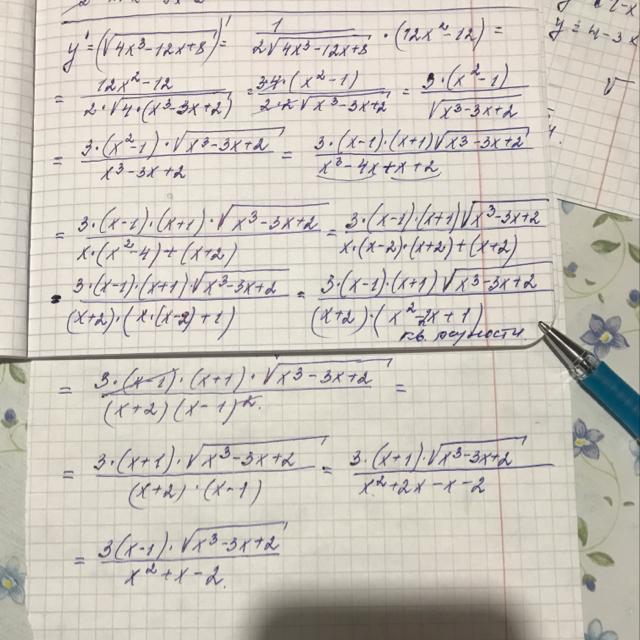 y' = (√(4x³-12x+8))' = 1/(2√(4x³-12x+8)) · (12x²-12) =
= (12x²-12)/(2·√(4·(x³-3x+2))) = (3·4·(x²-1))/(2·2√(x³-3x+2)) = (3·(x²-1))/√(x³-3x+2)
= (3·(x²-1)·√(x³-3x+2))/(x³-3x+2) = (3·(x-1)·(x+1)√(x³-3x+2))/(x³-4x+x+2)
= (3·(x-1)·(x+1)·√(x³-3x+2))/(x·(x²-4)+(x+2)) = (3·(x-1)·(x+1)√(x³-3x+2))/(x·(x-2)·(x+2)+(x+2))
= (3·(x-1)·(x+1)√(x³-3x+2))/((x+2)·(x·(x-2)+1)) = (3·(x-1)·(x+1)√(x³-3x+2))/((x+2)·(x²-2x+1))
кв. разности
= (3·(x-1)·(x+1)·√(x³-3x+2))/((x+2)(x-1)²) =
= (3·(x+1)·√(x³-3x+2))/((x+2)·(x-1)) = (3·(x+1)·√(x³-3x+2))/(x²+2x-x-2)
= (3(x-1)·√(x³-3x+2))/(x²+x-2)
y = 4-3x